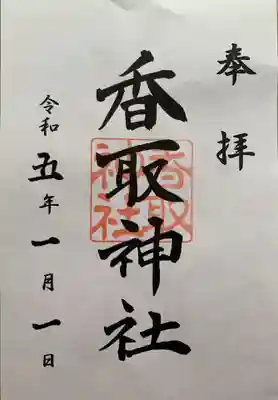 奉拝
香取神社
香取神社
令和五年一月一日